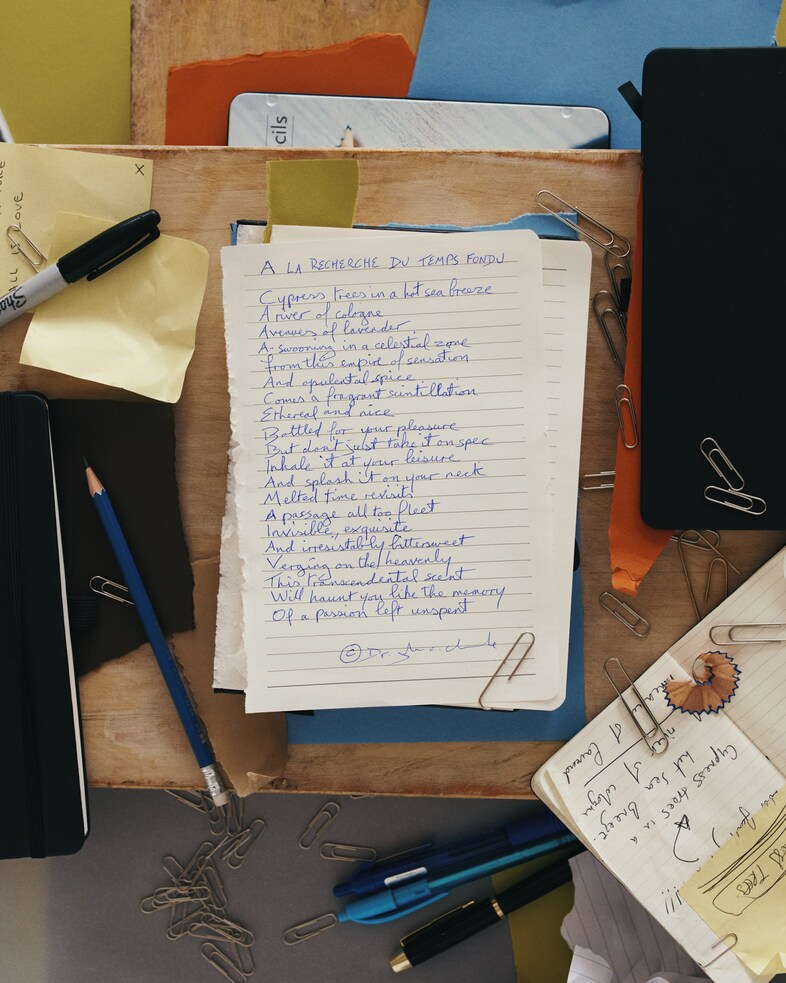 cils
X
LOVE
Sha
A LA RECHERCHE DU TEMPS FONDU
Cypress trees in a hot sea breeze
A river of cologne
Avenues of lavender
A-swooning in a celestial zone
From this empire of sensation
And opulental spice
Comes a fragrant scintillation
Ethereal and nice
Bottled for your pleasure
But don't just take it on spec
Inhale it at your leisure
And splash it on your neck
Melted time revisits
A passage all too fleet
Invisible, exquisite
And irresistably bittersweet
Verging on the heavenly
This transcendental scent
Will haunt you like the memory
Of a passion left unspent
© Dr
Cypress trees in a
hot sea Breeze.
A cologne
TREES
!!!